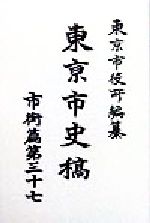 東京市役所編纂
東京市史稿
市街篇第三十七